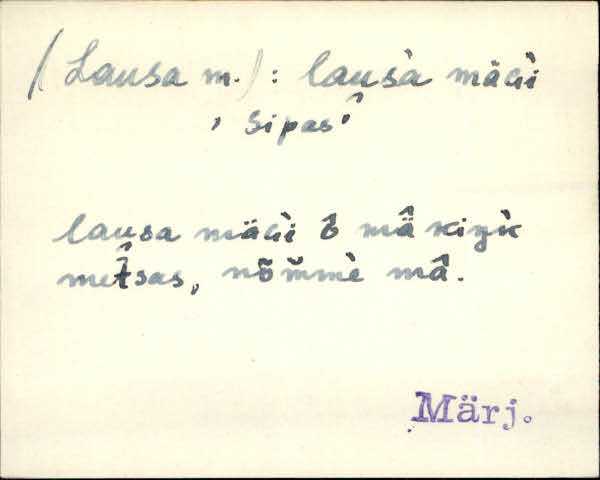 (Lausa m.): lausà mäGì
, Sipasˆ
lausa mäGì ô mâ̈ kiŋ̀k
met̂sas, nõm̆mè mâ.
Märj.